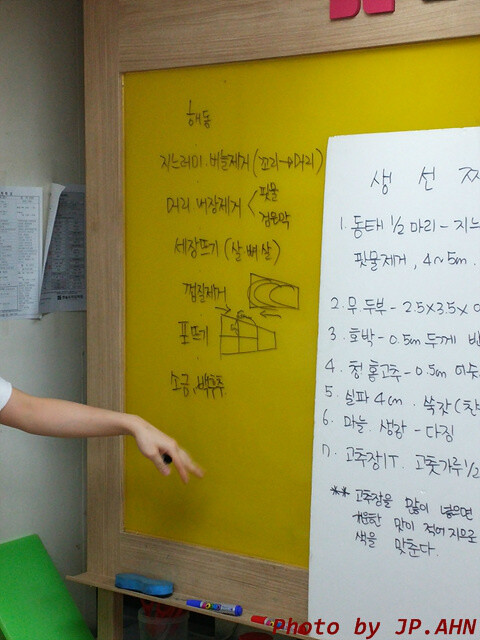 해동
지느러미.비늘제거(꼬리→머리)
머리 내장제거 < 핏물
검은막
세장뜨기 (살 뼈 살)
껍질제거
포뜨기
소금, 백후추
생 선 찌
1. 동태 1/2 마리 - 지느
핏물제거, 4~5cm.
2. 무. 두부 - 2.5x3.5x
3. 호박 - 0.5cm 두께 반
4. 청 홍고추 - 0.5cm 어슷
5. 실파 4cm. 쑥갓(찬
6. 마늘. 생강 - 다짐
7. 고추장1T. 고춧가루1/2
** 고추장을 많이 넣으면
개운한 맛이 적어지므로
색을 맞춘다.
Photo by JP.AHN